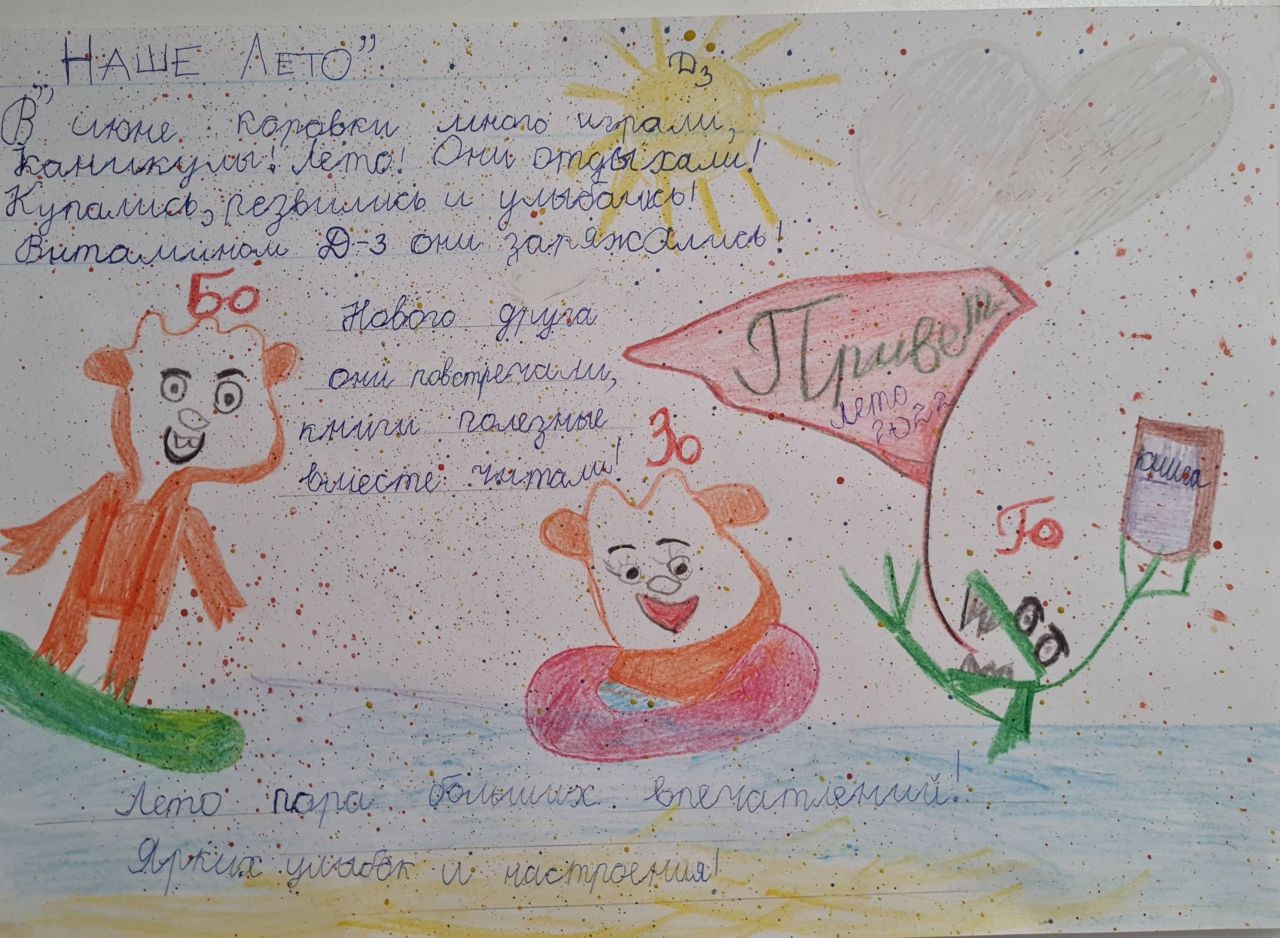 „Наше Лето”
Д3
„В июне коровки много играли,
Каникулы! Лето! Они отдыхали!
Купались, резвились и улыбались!
Витамином Д-3 они заряжались!
Бо
Нового друга
они повстречали,
книги полезные
вместе читали!
Зо
Привет
лето
2022
книга
Го
Лето пора больших впечатлений!
Ярких улыбок и настроения!